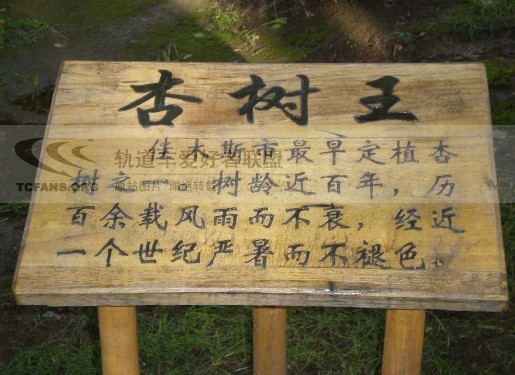 杏树王
佳木斯市最早定植杏
树之一。树龄近百年，历
百余载风雨而不衰，经近
一个世纪严暑而不褪色。
轨道车爱好者联盟
TCFANS.ORG